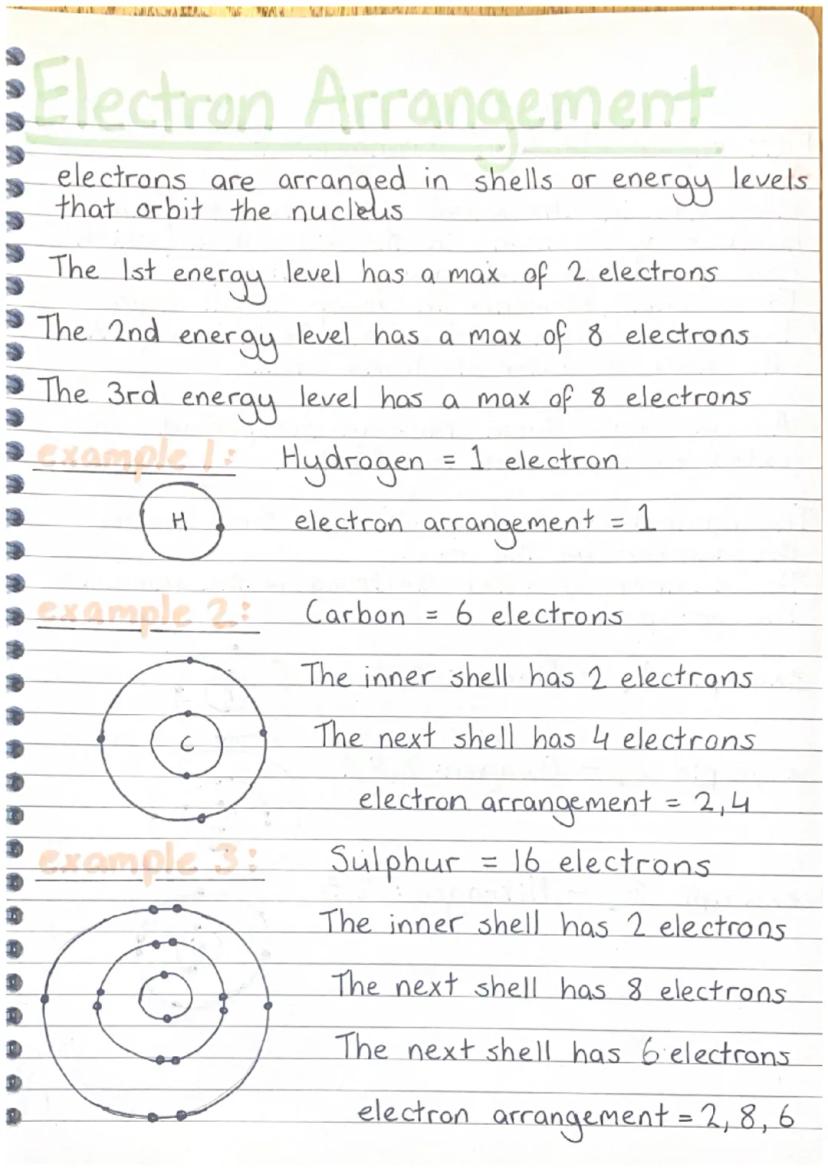 Electron Arrangement
electrons are arranged in shells or energy levels
that orbit the nucleus
The 1st energy level has a max of 2 electrons
The 2nd energy level has a max of 8 electrons
The 3rd energy level has a max of 8 electrons
example 1: Hydrogen = 1 electron
H electron arrangement = 1
example 2: Carbon = 6 electrons
The inner shell has 2 electrons
C The next shell has 4 electrons
electron arrangement = 2,4
example 3: Sulphur = 16 electrons
The inner shell has 2 electrons
The next shell has 8 electrons
The next shell has 6 electrons
electron arrangement = 2, 8, 6